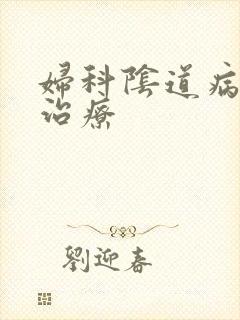 婦科陰道病
治療
劉迎春